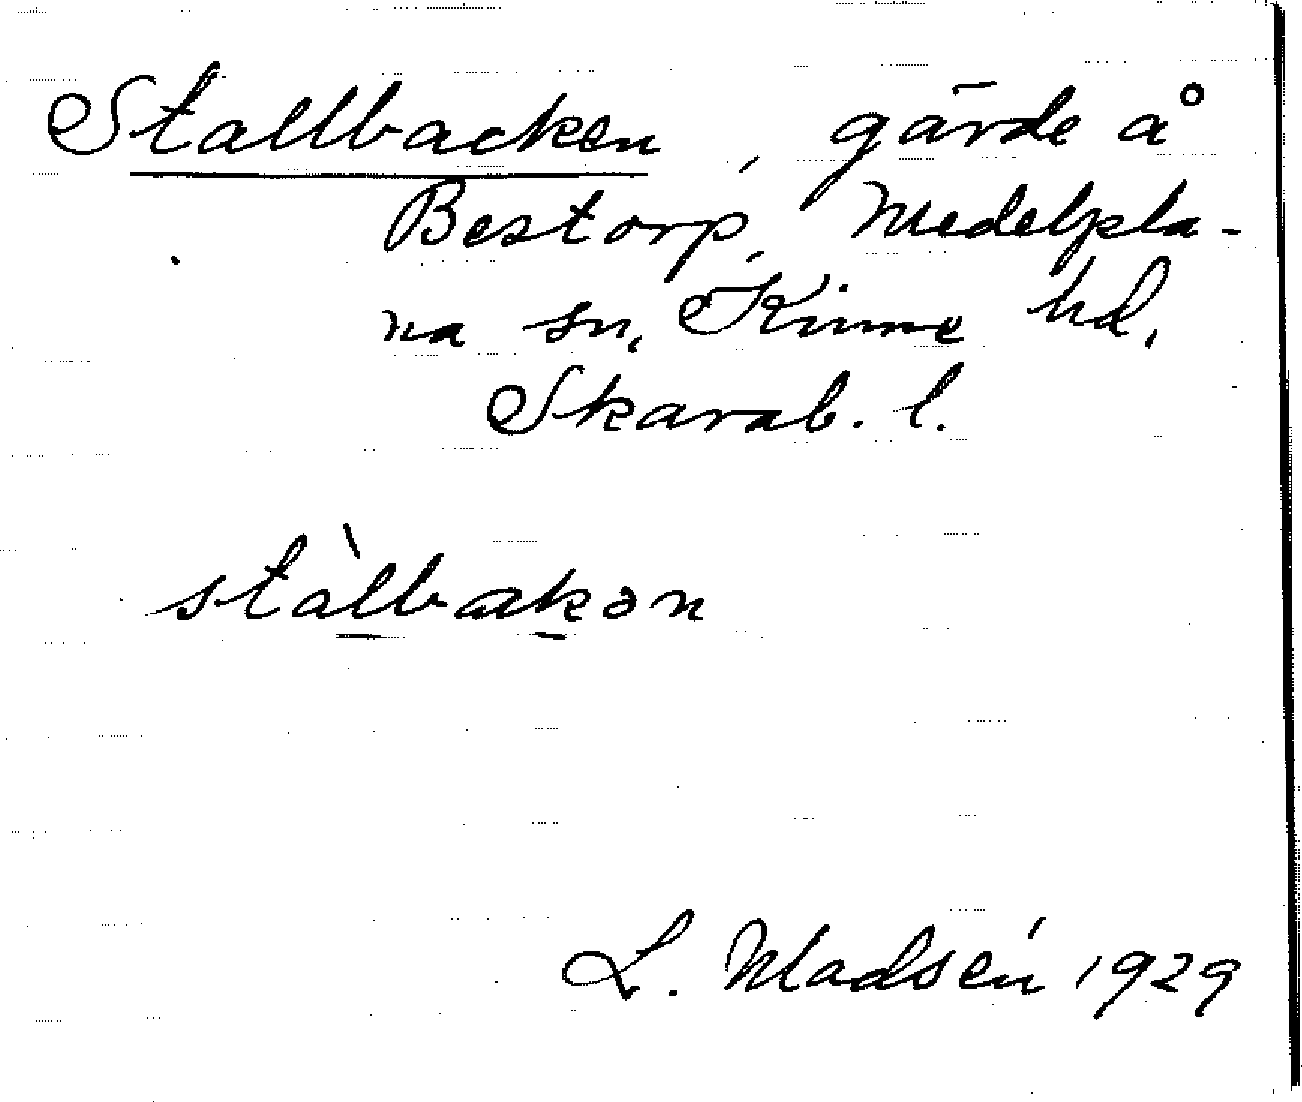 Stallbacken, gärde å
Bestorp, Medelpla-
na sn, Kinne hd,
Skarab. l.
stàlbakən
L. Madsén 1929